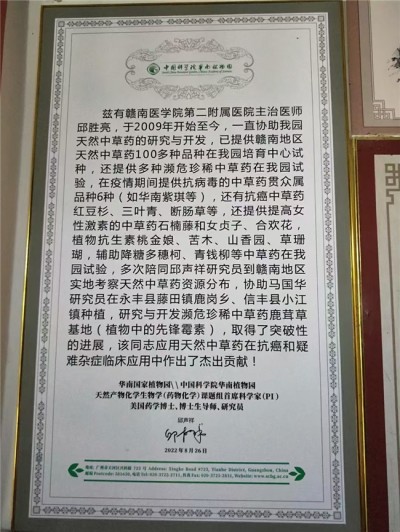 中国科学院华南植物园
兹有赣南医学院第二附属医院主治医师
邱胜亮，于2009年开始至今，一直协助我园
天然中草药的研究与开发，已提供赣南地区
天然中草药100多种品种在我园培育中心试
种，还提供多种濒危珍稀中草药在我园试
验，在疫情期间提供抗病毒的中草药贯众属
品种6种（如华南紫琪等），还有抗癌中草药
红豆杉、三叶青、断肠草等，还提供提高女
性激素的中草药石楠藤和女贞子、合欢花，
植物抗生素桃金娘、苦木、山香园、草珊
瑚，辅助降糖多穗柯、青钱柳等中草药在我
园试验，多次陪同邱声祥研究员到赣南地区
实地考察天然中草药资源分布，协助马国华
研究员在永丰县藤田镇鹿岗乡、信丰县小江
镇种植，研究与开发濒危珍稀中草药鹿茸草
基地（植物中的先锋霉素），取得了突破性
的进展，该同志应用天然中草药在抗癌和疑
难杂症临床应用中作出了杰出贡献！
华南国家植物园\\中国科学院华南植物园
天然产物化学生物学（药物化学）课题组首席科学家（PI）
美国药学博士、博士生导师、研究员
邱声祥
2022年8月26日
地址: 广州市天河区兴科路 723 号 Address: Xingke Road #723, Tianhe District, Guangzhou, China